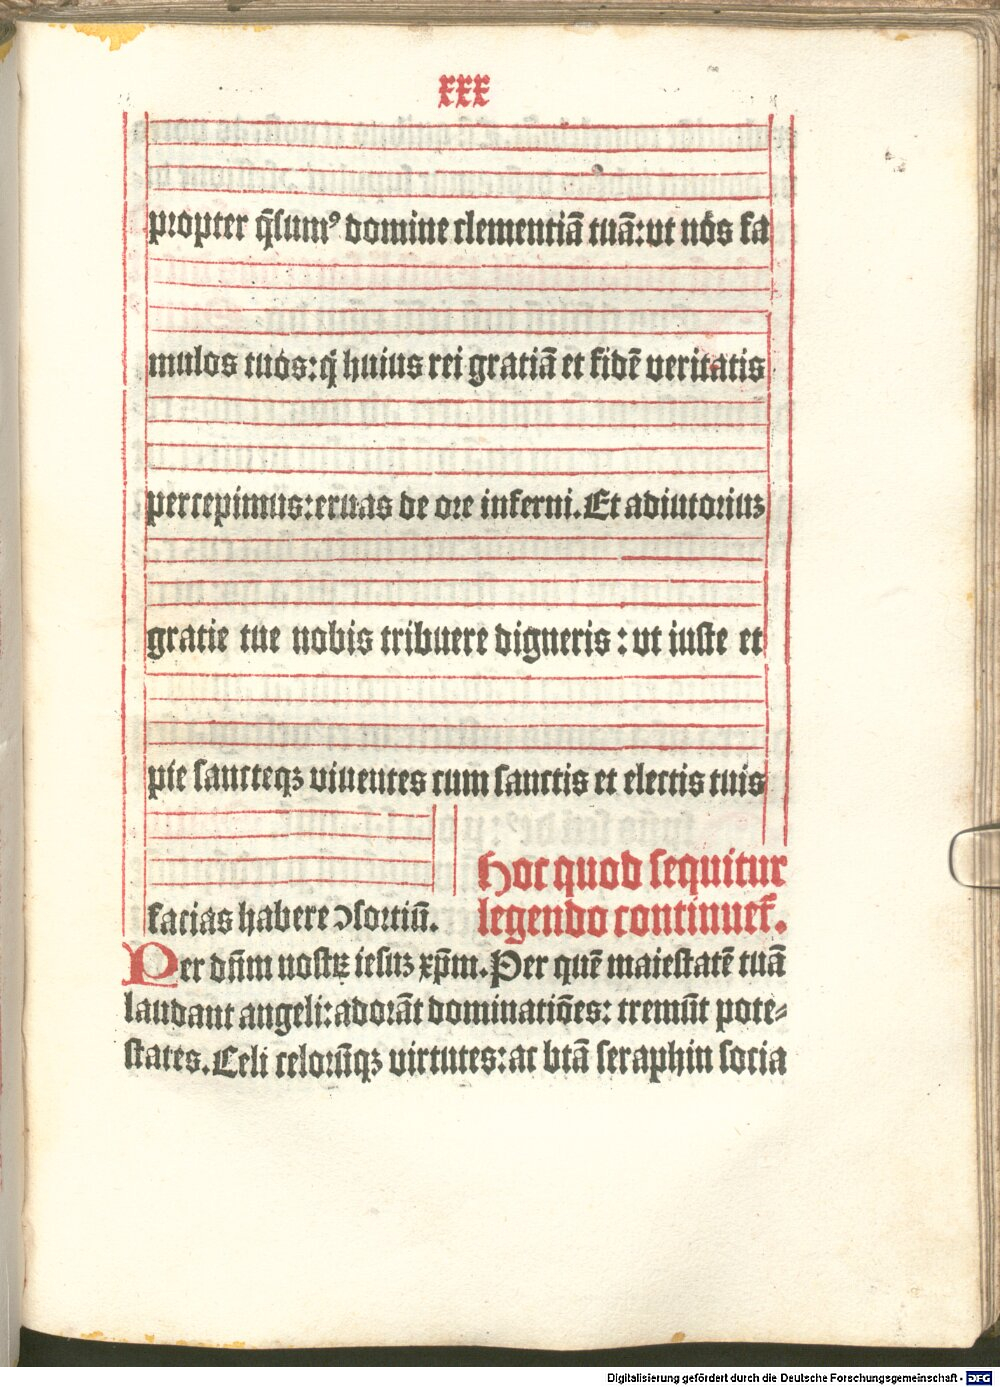 xxx
propter q̃sumꝰ domine clementiā tuā:vt nos fa
mulos tuos:q̇ huius rei gratiā et fidē veritatis
percepimus:eruas de ore inferni.Et adiutoriuꝫ
gratie tue nobis tribuere digneris:vt iuste et
pie sancteqꝫ viuentes cum sanctis et electis tuis
Hoc quod sequitur
facias habere ↄsortiū.
legendo continuet᷑.
Per dn̄m nostrꝫ iesuꝫ xp̄m.Per quē maiestatē tuā
laudant angeli:adorāt dominatiōes: tremūt pote⸗
states.Celi celorūqꝫ virtutes:ac btā seraphin socia
Digitalisierung gefördert durch die Deutsche Forschungsgemeinschaft - DFG